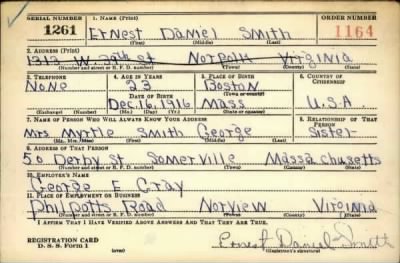 SERIAL NUMBER 1. NAME (Print) ORDER NUMBER
1261 Ernest Daniel Smith 1164
(First) (Middle) (Last)
2. ADDRESS (Print)
1313 W. 39th St Norfolk Virginia
(Number and street or R. F. D. number) (Town) (County) (State)
3. TELEPHONE 4. AGE IN YEARS 5. PLACE OF BIRTH 6. COUNTRY OF CITIZENSHIP
None 23 Boston
DATE OF BIRTH (Town or county)
Dec. 16, 1916 Mass U.S.A.
(Exchange) (Number) (Mo.) (Day) (Yr.) (State or country)
7. NAME OF PERSON WHO WILL ALWAYS KNOW YOUR ADDRESS 8. RELATIONSHIP OF THAT PERSON
Mrs Myrtle Smith George Sister
(Mr., Mrs., Miss) (First) (Middle) (Last)
9. ADDRESS OF THAT PERSON
50 Derby St Somerville Massachusetts
(Number and street or R. F. D. number) (Town) (County) (State)
10. EMPLOYER'S NAME
George E Gray
11. PLACE OF EMPLOYMENT OR BUSINESS
Philpotts Road Norview Virginia
(Number and street or R. F. D. number) (Town) (County) (State)
I AFFIRM THAT I HAVE VERIFIED ABOVE ANSWERS AND THAT THEY ARE TRUE.
REGISTRATION CARD
D. S. S. Form 1 (over) Ernest Daniel Smith
(Registrant's signature)